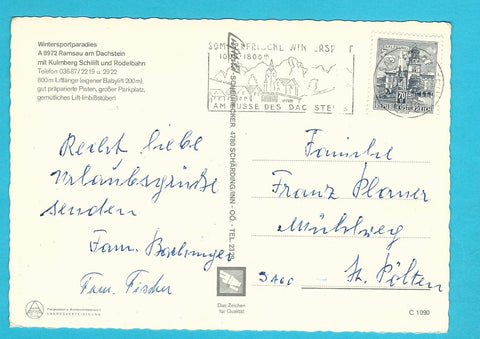 Wintersportparadies
A 8972 Ramsau am Dachstein
mit Kulmberg Schilift und Rodelbahn
Telefon 03687/2219 u. 2922
800m Liftlänge (eigener Babylift 200m),
gut präparierte Pisten, großer Parkplatz,
gemütliches Lift-Imbißstüberl
Recht liebe
Urlaubsgrüße
senden
Fam.
Fam. Fischer
SOMMERFRISCHE WINTERSP T
AM FUSSE DES DACHSTEINS
4780 SCHÄRDING/INN - OÖ. - TEL. 2378
Das Zeichen
für Qualität
REPUBLIK ÖSTERREICH
Familie
Franz Planer
Mühlweg
St. Pölten
C 1090